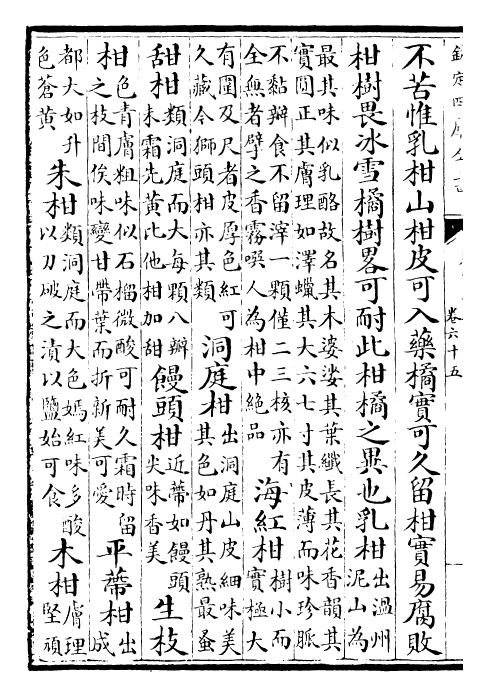 欽定四庫全書
卷六十五
不苦惟乳柑山柑皮可入藥橘實可久留柑實易腐敗
柑樹畏冰雪橘樹畧可耐此柑橘之異也乳柑出溫州泥山為
最其味似乳酪故名其木婆娑其葉纎長其花香韻其
實圓正其膚理如澤蠟其大六七寸其皮薄而味珍脈
不黏瓣食不留滓一顆僅二三核亦有
全無者擘之香霧噀人為柑中絶品
海紅柑樹小而實極大
有圍及尺者皮厚色紅可
久藏今獅頭柑亦其類
洞庭柑出洞庭山皮細味美
其色如丹其熟最蚤
甜柑類洞庭而大每顆八瓣
未霜先黄比他柑加甜
饅頭柑近蒂如饅頭
尖味香美
生枝
柑色青膚粗味似石榴微酸可耐久霜時留
之枝間俟味變甘帶葉而折新美可愛
平蔕柑出成
都大如升
色蒼黄
朱柑類洞庭而大色嫣紅味多酸
以刀破之漬以鹽始可食
木柑膚理
堅頑